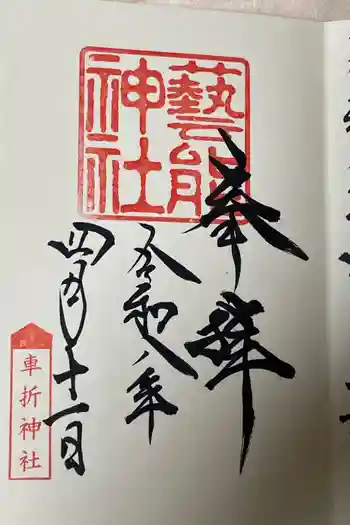 藝能
神社
奉拝
令和八年
四月十一日
車折神社